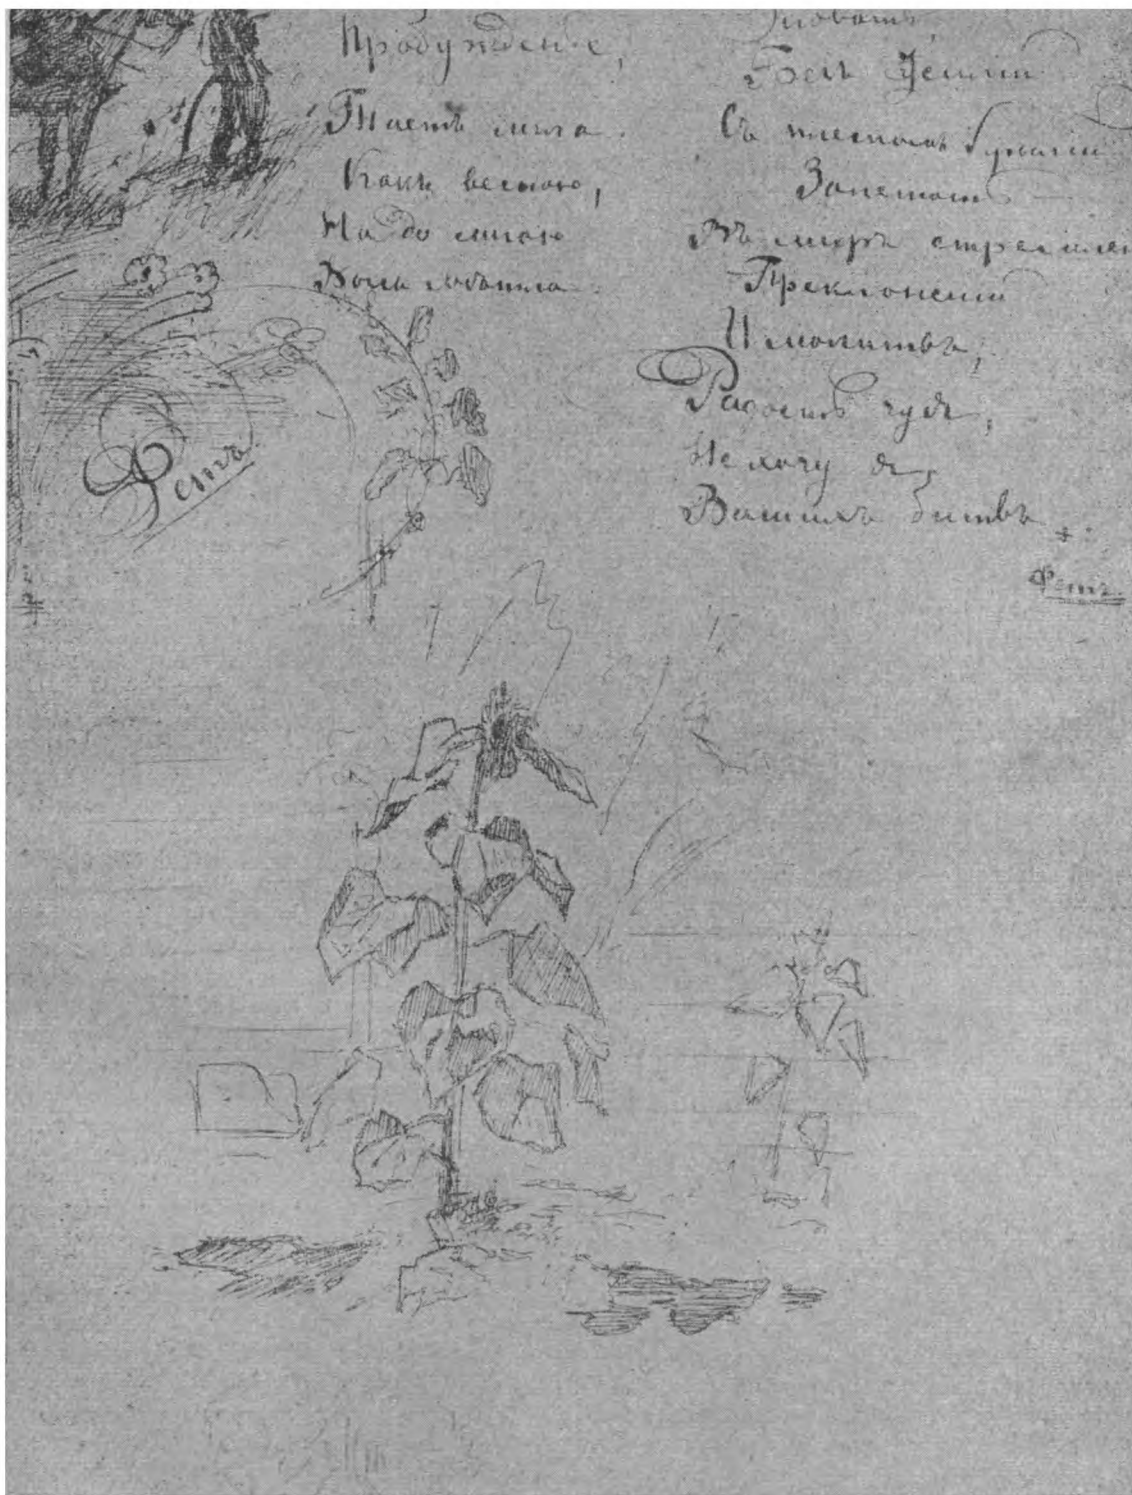 Пробужденье,
Таетъ мгла.
Какъ весною,
На до мною
Высь свѣтла.
Фетъ.
Уповать,
Безъ усилій
Съ плескомъ крылій
Залетать —
Въ міръ стремлен
Преклоненій
И молитвъ;
Радость чуя,
Не хочу я,
Вашихъ битвъ.
Фетъ.